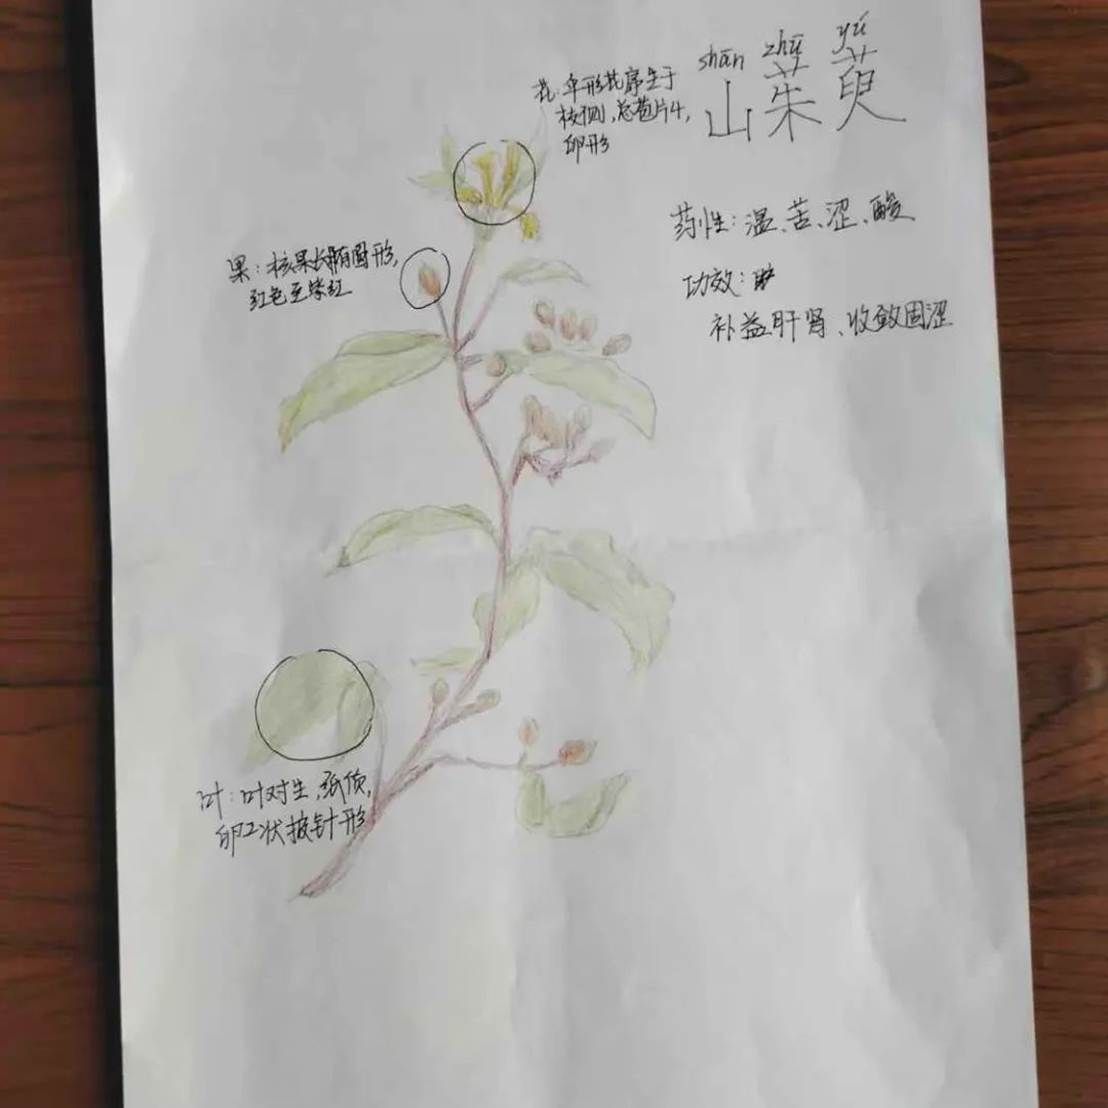 shān zhū yú
山茱萸
花:伞形花序生于
枝侧,总苞片4,
卵形
药性:温、苦、涩、酸
果:核果长椭圆形,
红色至紫红
功效:
补益肝肾、收敛固涩
叶:叶对生,纸质,
卵状披针形